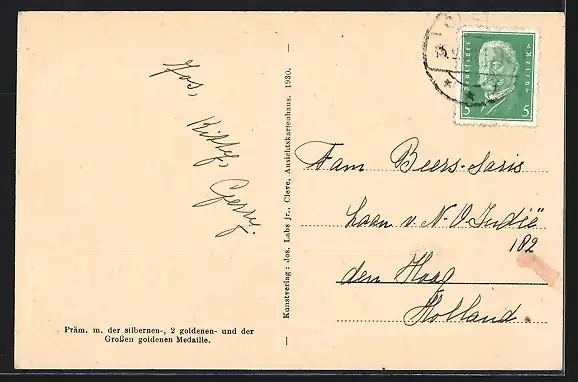 Jos,
Kitty,
Gerry.
Präm. m. der silbernen-, 2 goldenen- und der
Großen goldenen Medaille.
Kunstverlag: Jos. Labs jr., Cleve, Ansichtskartenhaus. 1930.
Deutsches Reich
5 5
Fam Beers-Saris
Laan v. N-O-Indië
182
den Haag
Holland.